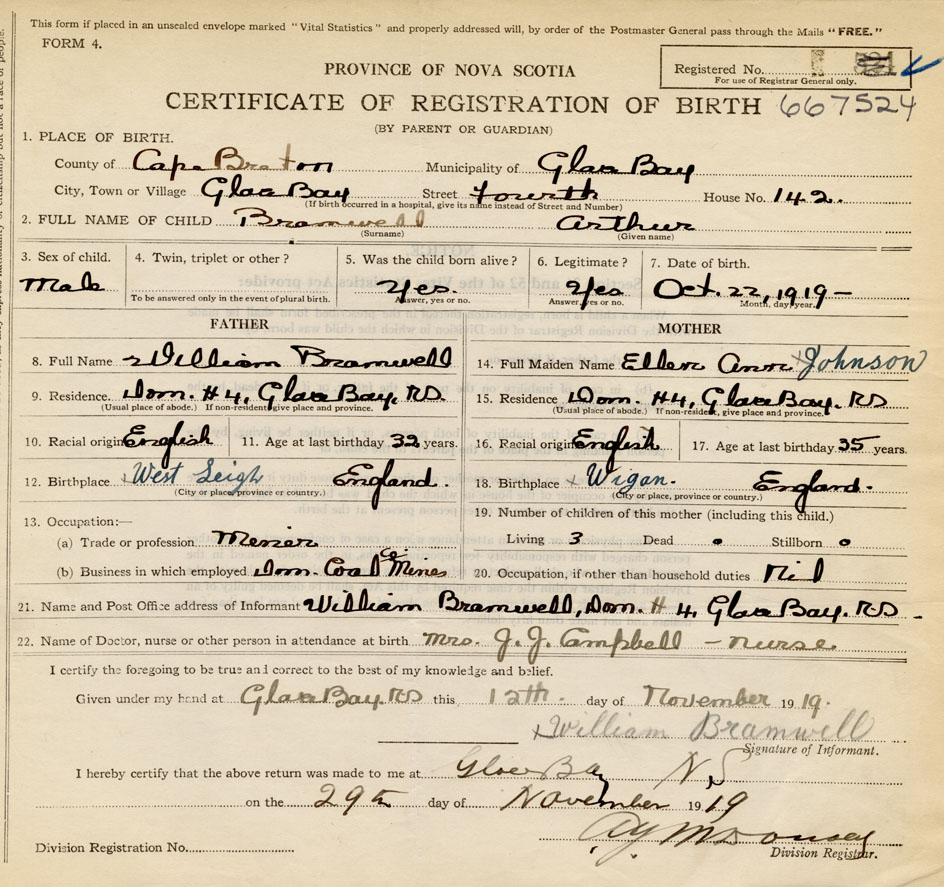 This form if placed in an unsealed envelope marked "Vital Statistics" and properly addressed will, by order of the Postmaster General pass through the Mails "FREE."
FORM 4.
Registered No.
For use of Registrar General only.
PROVINCE OF NOVA SCOTIA
CERTIFICATE OF REGISTRATION OF BIRTH 667524
(BY PARENT OR GUARDIAN)
1. PLACE OF BIRTH.
County of Cape Breton Municipality of Glace Bay
City, Town or Village Glace Bay Street Fourth House No. 142.
(If birth occurred in a hospital, give its name instead of Street and Number)
2. FULL NAME OF CHILD Bramwell Arthur
(Surname) (Given name)
3. Sex of child. 4. Twin, triplet or other? 5. Was the child born alive? 6. Legitimate? 7. Date of birth.
Male Yes. Yes Oct. 22, 1919-
To be answered only in the event of plural birth. Answer, yes or no. Answer, yes or no. Month, day, year.
FATHER MOTHER
8. Full Name William Bramwell 14. Full Maiden Name Ellen Ann Johnson
9. Residence. Dom. #4, Glace Bay. NS 15. Residence Dom. #4, Glace Bay. NS
(Usual place of abode.) If non-resident, give place and province. (Usual place of abode.) If non-resident, give place and province.
10. Racial origin English 11. Age at last birthday 32 years. 16. Racial origin English 17. Age at last birthday 35 years.
12. Birthplace x West Leigh England. 18. Birthplace x Wigan. England.
(City or place, province or country.) (City or place, province or country.)
13. Occupation:— 19. Number of children of this mother (including this child.)
(a) Trade or profession Miner Living 3 Dead o Stillborn o
(b) Business in which employed Dom. Coal Co. Mines 20. Occupation, if other than household duties Nil
21. Name and Post Office address of Informant William Bramwell, Dom. # 4, Glace Bay. NS
22. Name of Doctor, nurse or other person in attendance at birth Mrs. J. J. Campbell - nurse
I certify the foregoing to be true and correct to the best of my knowledge and belief.
Given under my hand at Glace Bay. NS this 12th. day of November 1919.
x William Bramwell
Signature of Informant.
I hereby certify that the above return was made to me at Glace Bay N S
on the 29th day of November 1919
Division Registration No.
Division Registrar.